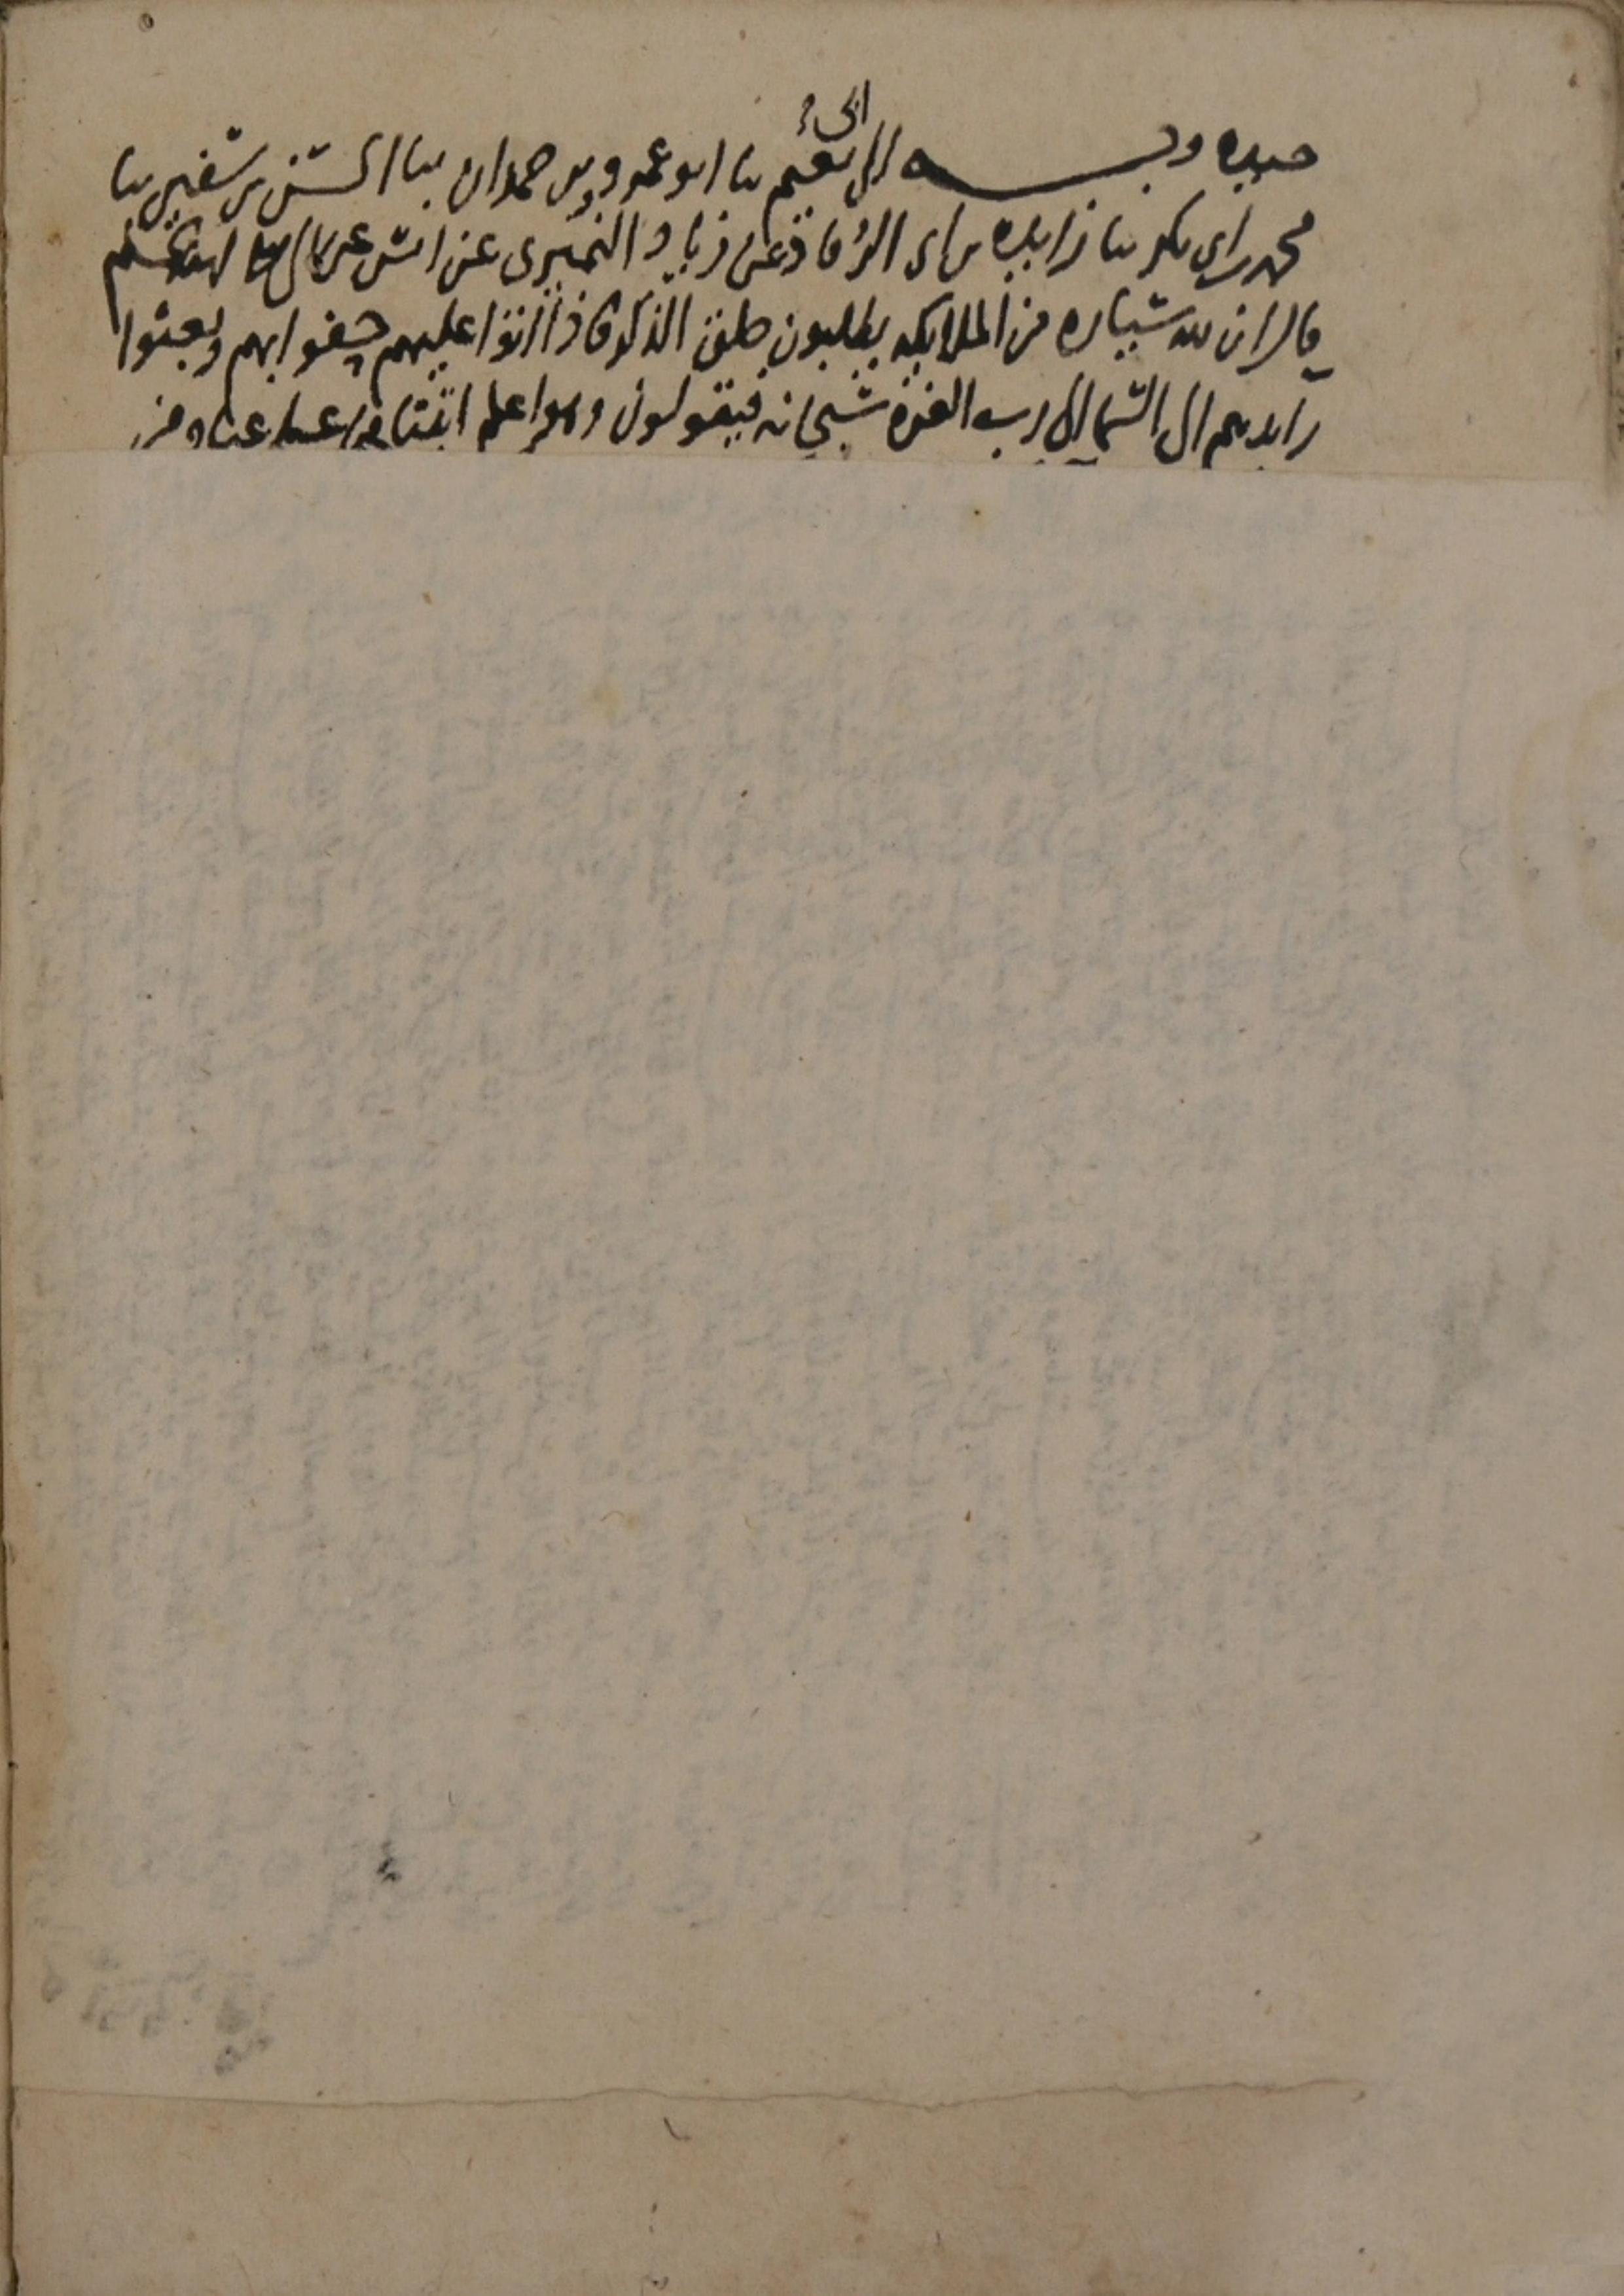 وبــــه الى ابي نعيم نا ابو عمرو بن حمدان نا الحسن بن سفين نا
محمد بن ابى بكر نا زايده بن ابى الرقاد عن زياد النميرى عن انس عن النبي صلى الله عليه وسلم
قال ان لله سياره من الملايكه يطلبون حلق الذكر فاذا اتوا عليهم حفوا بهم وبعثوا
رايدهم الى السما الى رب العزه سبحانه فيقولون وهو اعلم اتينا على عباد من